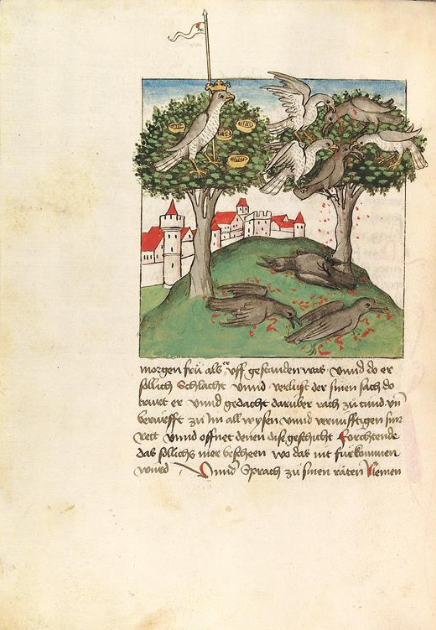 morgen frü als er uff gestanden was vnnd do er
sӧllich Schlacht vnnd verlust der sinen sach do
truret er vnnd gedacht darüber rach zu tund vn̄
beruefft zu im all wysen vnnd vernufftigen sinr
rett vnnd offnet denen dise geschicht Forchtende
das sӧllichs mer beschehen wo das nit fürkommen
wurd Vnnd Sprach zu sinen räten Niemen